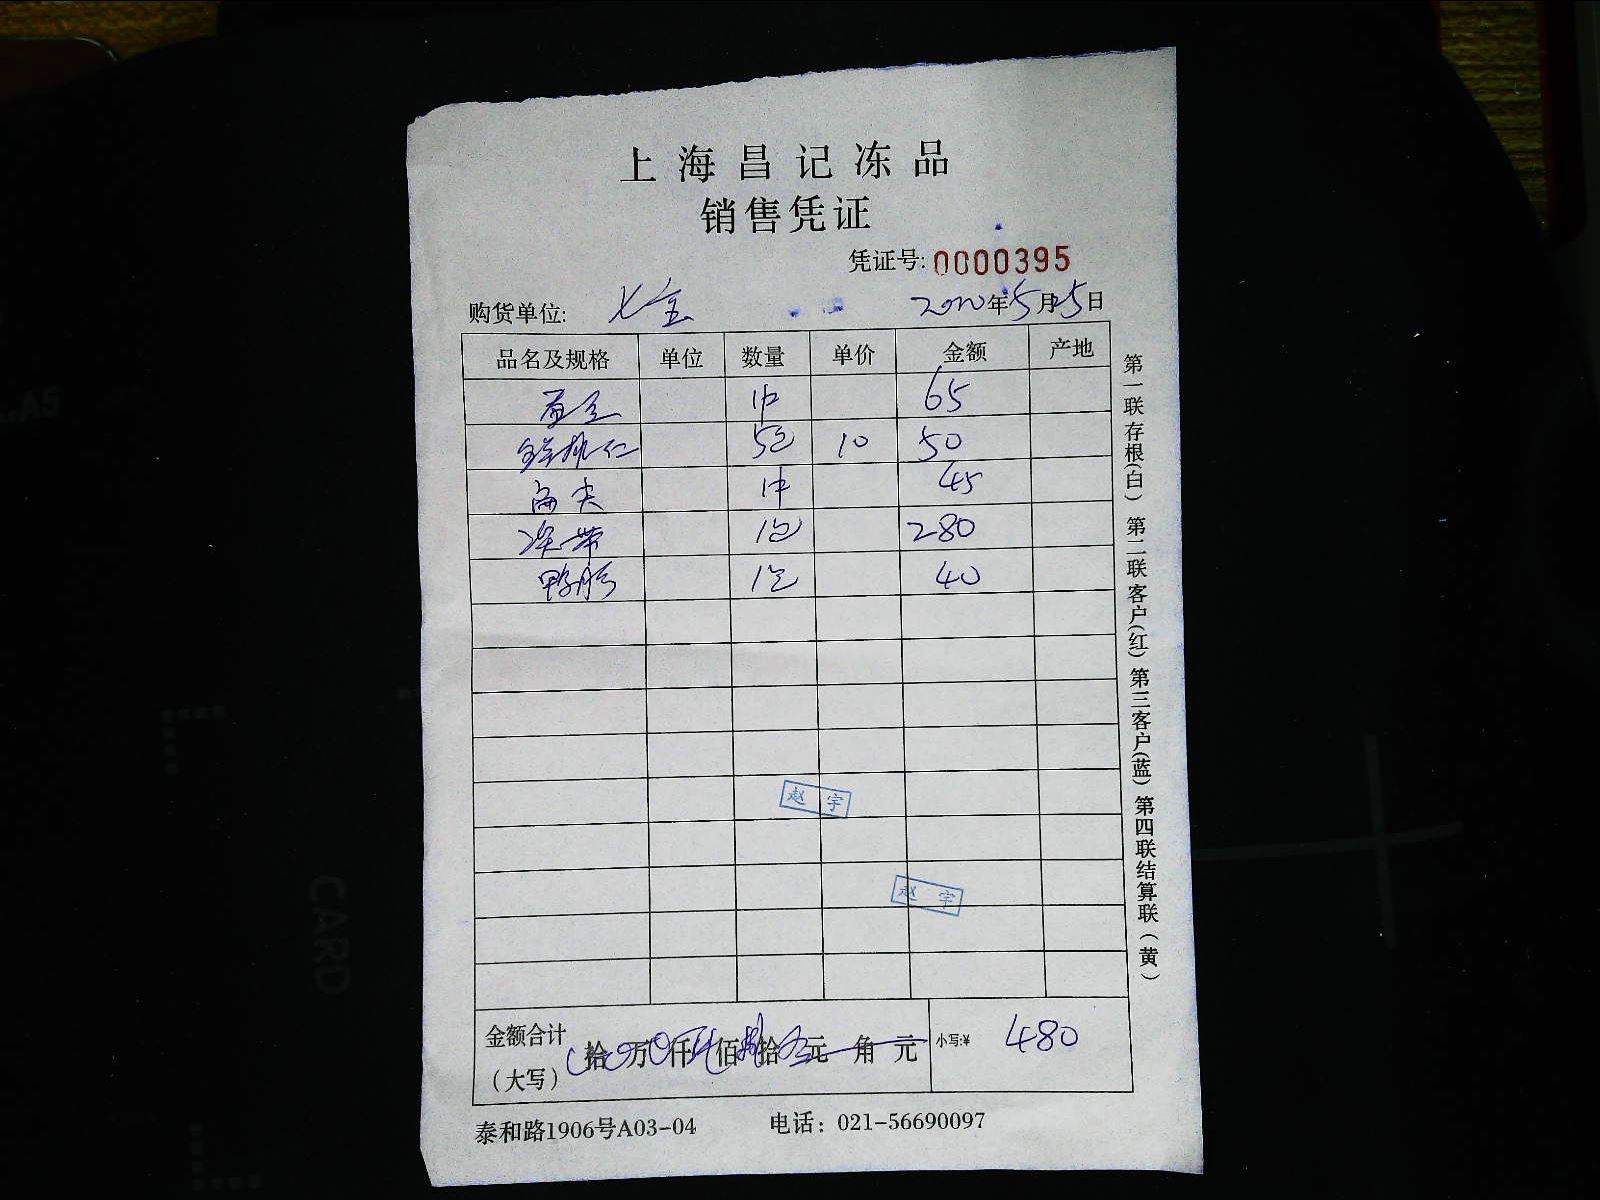 上海昌记冻品
销售凭证
凭证号: 0000395
购货单位: 七宝 2020年5月25日
品名及规格 单位 数量 单价 金额 产地
65
5包 10 50
45
1包 280
鸭肠 1包 40
赵宇
赵宇
金额合计（大写） 拾 万 仟 佰 拾 元 角 元 小写:¥ 480
泰和路1906号A03-04 电话：021-56690097
第一联存根(白) 第二联客户(红) 第三客户(蓝) 第四联结算联(黄)